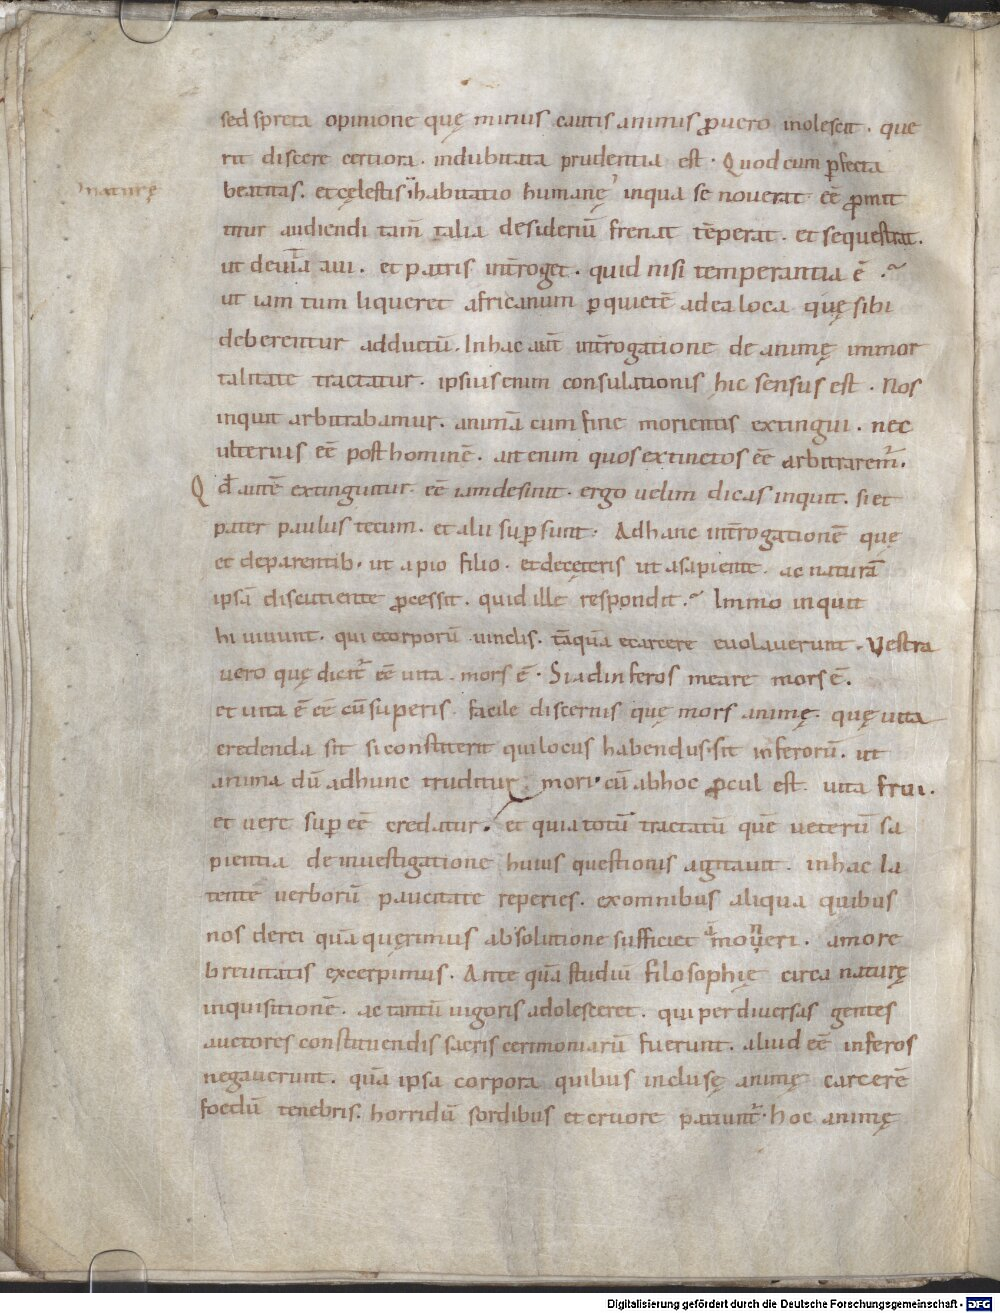 sed spreta opinione quę minus cautis animis ꝓ uero inolescit . que
rit discere certiora . indubitata prudentia est . Quod cum ꝑfecta
naturę
beatitas . et cęlestis habitatio humanę inqua se nouerat eē ꝓmit
titur audiendi tam̄ talia desideriū frenat tēperat . et sequestrat .
ut deuita aui . et patris int̄roget . quid nisi temperantia ē .
ut iam tum liqueret africanum ꝑ quietē ad ea loca quę sibi
deberentur adductū . In hac aut̄ int̄rogatione de animę immor
talitate tractatur . ipsius enim consulationis hic sensus est . Nos
inquit arbitrabamur . animā cum fine morientis extingui . nec
ulterius eē post hominē . ait enim quos extinctos eē arbitraremur̄ .
Qđ autē extinguitur . eē iam desinit . ergo uelim dicas inquit . si et
pater paulus tecum . et alii suꝑsunt . Ad hanc int̄rogationē quę
et deparentib . ut a pio filio . et decęteris ut a sapiente . ac naturā
ipsā discutiente ꝓcessit . quid ille respondit . Immo inquit
hi uiuunt . qui ecorporū uinclis . tāquā ecarcere euolauerunt . Vestra
uero quę dicit̄ eē uita . mors ē . Si ad inferos meare mors ē .
et uita ē eē cū superis . facile discernis quę mors animę . quę uita
credenda sit si constiterit qui locus habendus sit inferorū . ut
anima dū ad hunc truditur . mori cū ab hoc ꝓcul est . uita frui .
et uere suꝑ eē credatur . et quia totū tractatū quē ueterū sa
pientia de inuestigatione huius questionis agitauit . in hac la
tente uerborū paucitate reperies . ex omnibus aliqua quibus
nos derei quā quęrimus absolutione sufficiet . amore
breuitatis excerpimus . Ante quā studiū filosophię circa naturę
inquisitionē . ac tantū uigoris adolesceret . qui per diuersas gentes
auctores constituendis sacris cerimoniarū fuerunt . aliud eē inferos
negauerunt . quā ipsa corpora quibus inclusę animę carcerē
foedū tenebris . horridū sordibus et cruore patiunt̄ . hoc animę
Digitalisierung gefördert durch die Deutsche Forschungsgemeinschaft - DFG